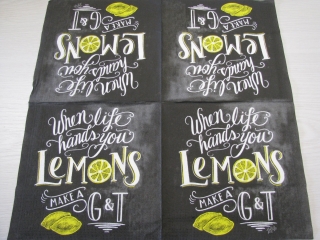 When life
hands you
LEMONS
MAKE A
G&T
When life
hands you
LEMONS
MAKE A
G&T
When life
hands you
LEMONS
MAKE A
G&T
When life
hands you
LEMONS
MAKE A
G&T